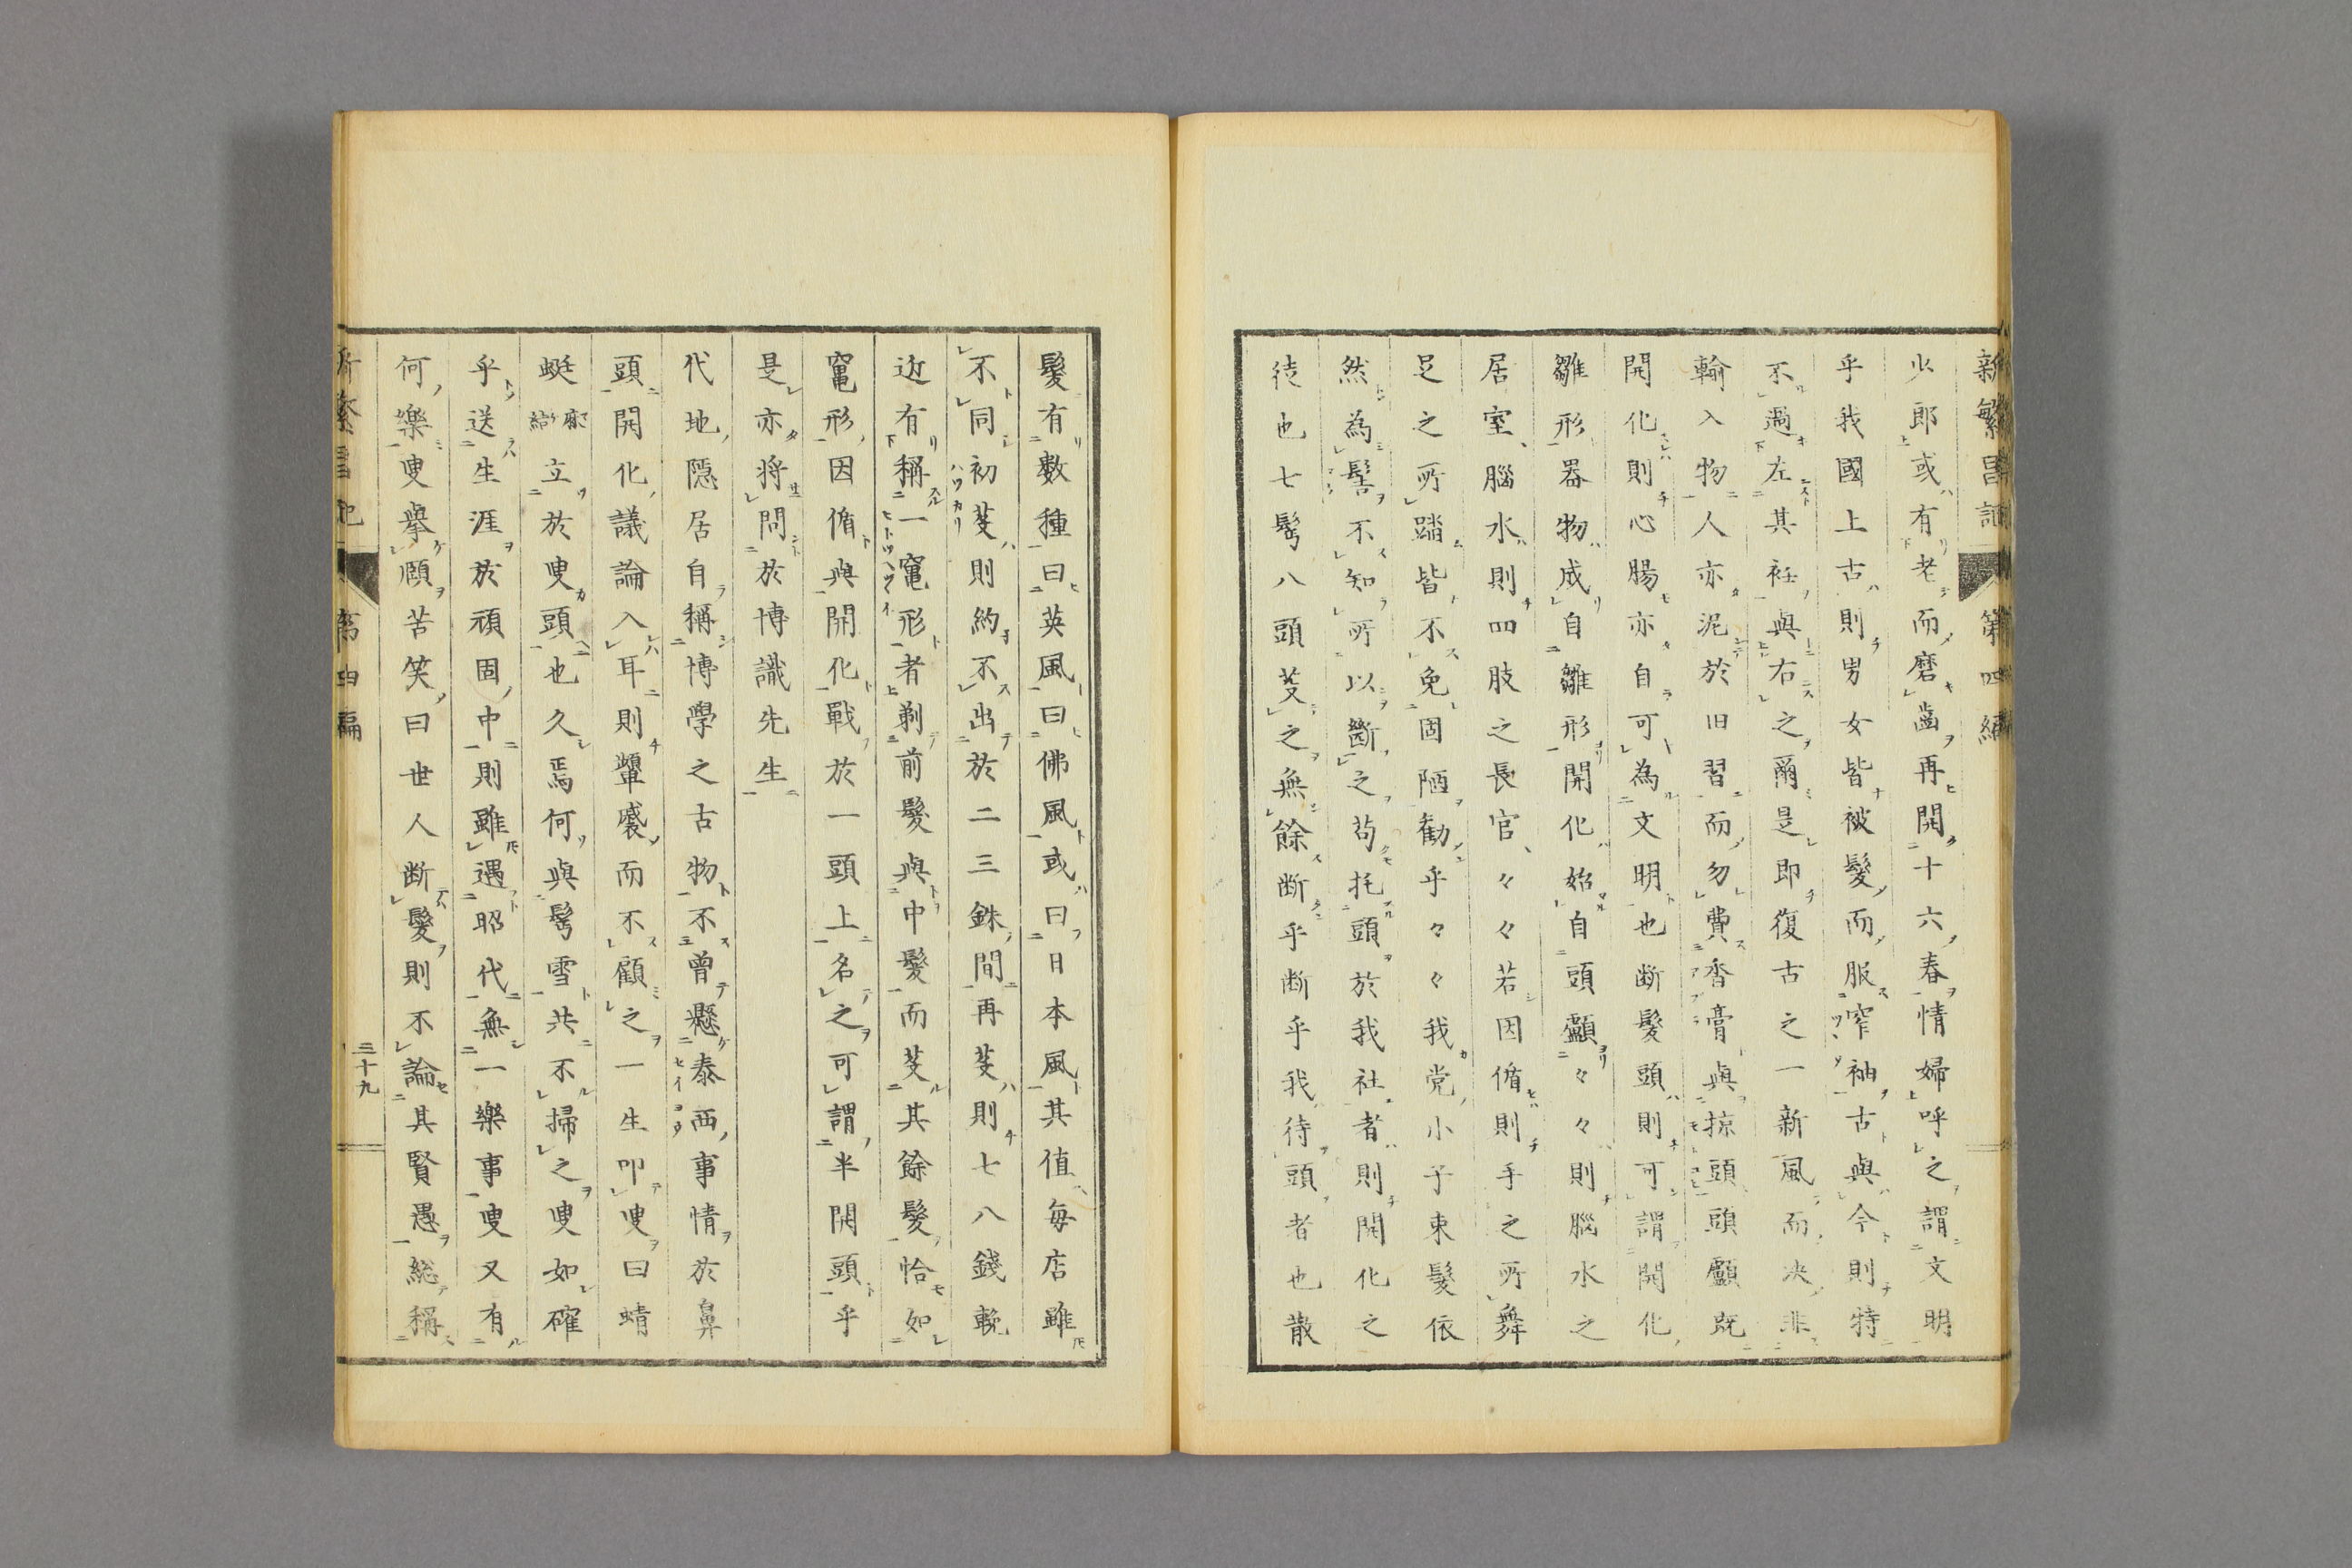 新繁昌記 第四編
少郎或有老而磨齒再開十六春情婦呼之謂文明
乎我國上古則男女皆被髮而服窄袖古與今則特
不過左其衽與右之爾是即復古之一新風而决非
輸入物人亦泥於旧習而勿費香膏與掠頭頭顱既
開化則心腸亦自可為文明也断髮頭則可謂開化
雛形器物成自雛形開化始自頭顱々々則腦水之
居室腦水則四肢之長官々々若因循則手之所舞
足之所踏皆不免固陋勸乎々々我党小子束髮依
然為髻不知所以斷之苟托頭於我社者則開化之
徒也七髩八頭芟之無餘断乎断乎我待頭者也散
髮有數種曰英風曰佛風或曰日本風其値每店雖
不同初芟則約不出於二三銖間再芟則七八錢輓
近有稱一竃形者剃前髮與中髮而芟其餘髮恰如
竃形因循與開化戰於一頭上名之可謂半開頭乎
是亦將問於博識先生
代地隱居自稱博學之古物不曾懸泰西事情於鼻
頭開化議論入耳則顰蹙而不顧之一生叩叟曰蜻
蜓立於叟頭也久焉何與髩雪共不掃之叟如確
乎送生涯於頑固中則雖遇昭代無一樂事叟又有
何樂叟擧頤苦笑曰世人断髮則不論其賢愚総稱
第四編 三十九